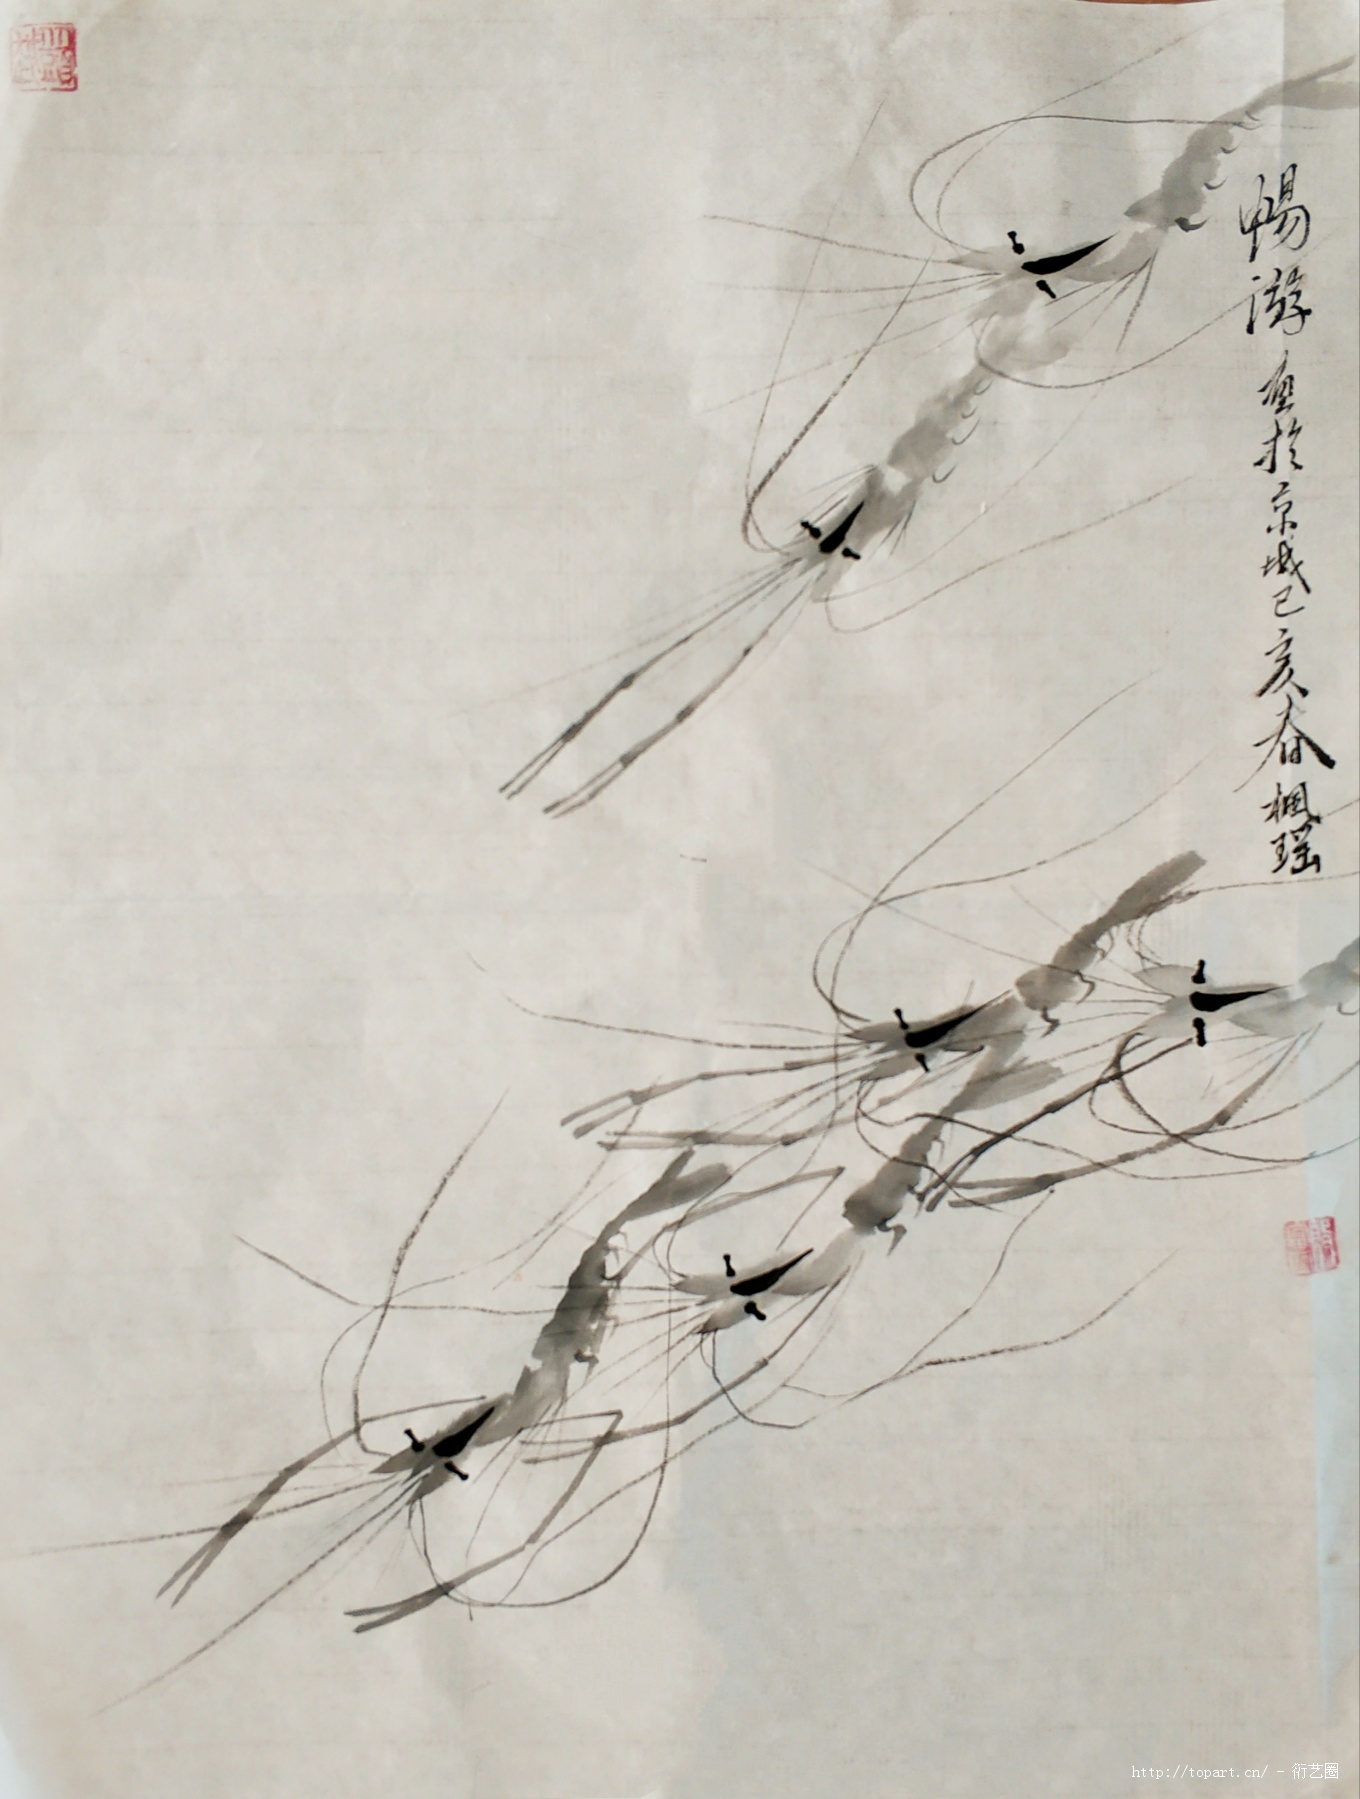 暢游 画於京城己亥春楓瑶
http://topart.cn/ - 衍艺圈